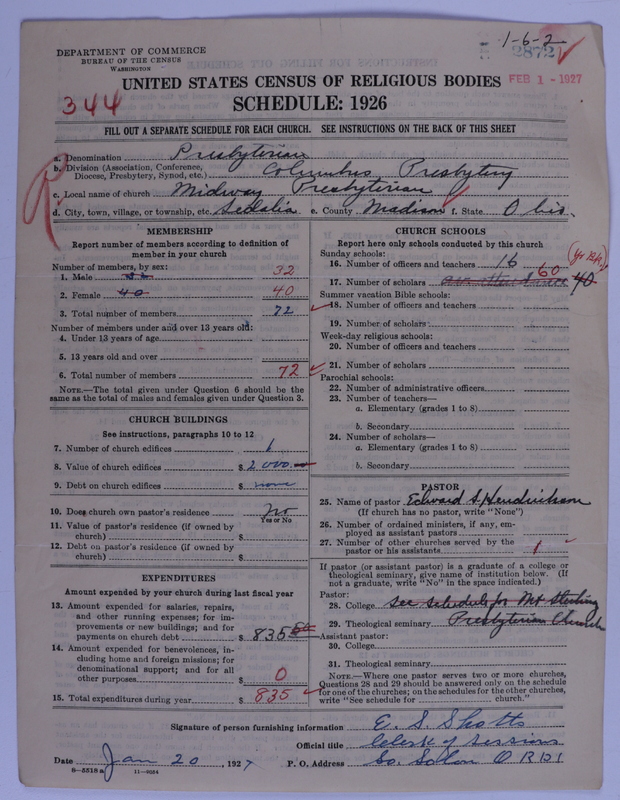 1-6-2
2872
DEPARTMENT OF COMMERCE
BUREAU OF THE CENSUS
WASHINGTON
UNITED STATES CENSUS OF RELIGIOUS BODIES
FEB 1 - 1927
344
SCHEDULE: 1926
FILL OUT A SEPARATE SCHEDULE FOR EACH CHURCH. SEE INSTRUCTIONS ON THE BACK OF THIS SHEET
a. Denomination Presbyterian
b. Division (Association, Conference, Diocese, Presbytery, Synod, etc.) Columbus Presbytery
c. Local name of church Midway Presbyterian
d. City, town, village, or township, etc. Sedalia e. County Madison f. State Ohio.
MEMBERSHIP
Report number of members according to definition of
member in your church
Number of members, by sex:
1. Male 32
2. Female 40 40
3. Total number of members 72
Number of members under and over 13 years old:
4. Under 13 years of age
5. 13 years old and over
6. Total number of members 72
NOTE.—The total given under Question 6 should be the
same as the total of males and females given under Question 3.
CHURCH BUILDINGS
See instructions, paragraphs 10 to 12
7. Number of church edifices 1
8. Value of church edifices $ 2000.00
9. Debt on church edifices $ none
10. Does church own pastor's residence? No
Yes or No
11. Value of pastor's residence (if owned by
church) $
12. Debt on pastor's residence (if owned by
church) $
EXPENDITURES
Amount expended by your church during last fiscal year
13. Amount expended for salaries, repairs,
and other running expenses; for im-
provements or new buildings; and for
payments on church debt $ 835
14. Amount expended for benevolences, in-
cluding home and foreign missions; for
denominational support; and for all
other purposes $ 0
15. Total expenditures during year $ 835
CHURCH SCHOOLS
Report here only schools conducted by this church
Sunday schools:
16. Number of officers and teachers 16
17. Number of scholars av attendance 60 40
Summer vacation Bible schools:
18. Number of officers and teachers
19. Number of scholars
Week-day religious schools:
20. Number of officers and teachers
21. Number of scholars
Parochial schools:
22. Number of administrative officers
23. Number of teachers—
a. Elementary (grades 1 to 8)
b. Secondary
24. Number of scholars—
a. Elementary (grades 1 to 8)
b. Secondary
PASTOR
25. Name of pastor Edward S. Hendrickson
(If church has no pastor, write "None")
26. Number of ordained ministers, if any, em-
ployed as assistant pastors
27. Number of other churches served by the
pastor or his assistants 1
If pastor (or assistant pastor) is a graduate of a college or
theological seminary, give name of institution below. (If
not a graduate, write "No" in the space indicated.)
Pastor:
28. College see schedule for Mt Sterling
29. Theological seminary Presbyterian Church
Assistant pastor:
30. College
31. Theological seminary
NOTE.—Where one pastor serves two or more churches,
Questions 28 and 29 should be answered only on the schedule
for one of the churches; on the schedules for the other churches,
write "See schedule for ______ church."
Signature of person furnishing information E. S. Shotts
Official title Clerk of Sessions
Date Jan 20, 1927 P. O. Address So. Solon O RD1
8-5518 a 11-9054